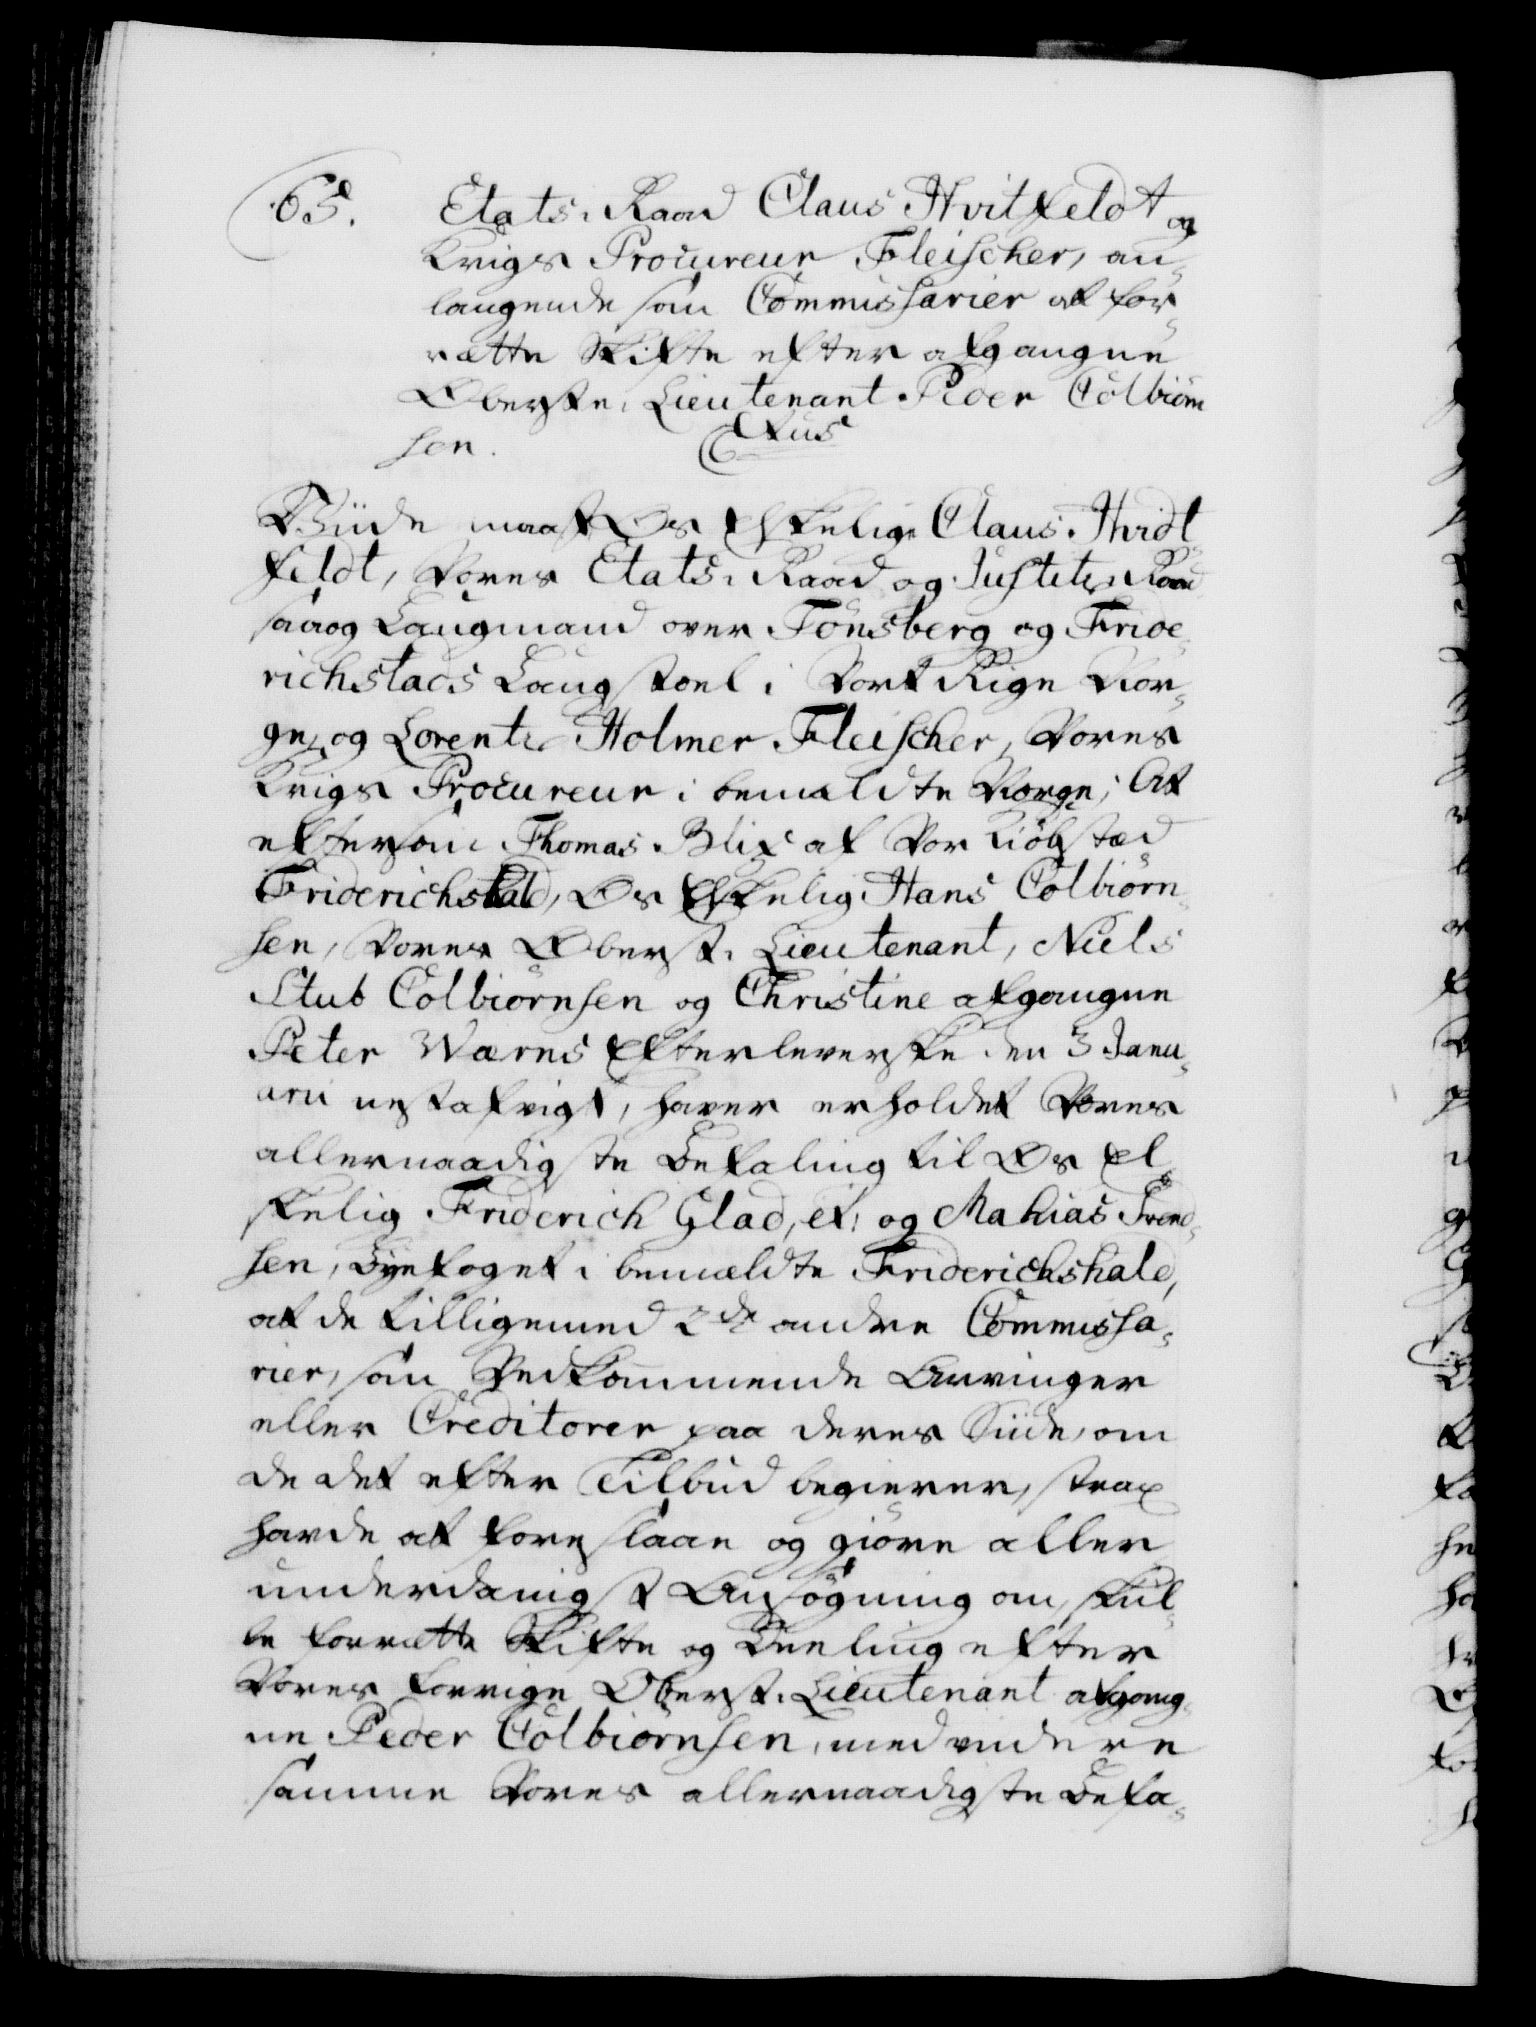 65. Etats-Raad Claus Hvitfeldt og
Krigs Procureur Fleischer, an-
langende som Commissarier at for-
rætte Skifte efter afgangne
Oberste-Lieutenant Peder Colbiørn
sen.
Vide maa I Os Elskelige Claus Hvidt-
feldt, Vores Etats-Raad og Justits-Raad
saaog Laugmand over Tønsberg og Fride-
richstads Laugstoel i Vort Rige Nor-
ge, og Lorents Holmer Fleischer, Vores
Krigs Procureur i bemældte Norge; At
eftersom Thomas Blix af Vor Kiøbsted
Friderichshald, Os Elskelig Hans Colbiørn-
sen, Vores Oberst-Lieutenant, Niels
Stub Colbiørnsen og Christine afgangne
Peter Wærns Efterleverske den 3 Janu-
arii nest afvigt, haver erholdet Vores
allernaadigste Befaling til Os El-
skelig Friderich Glad, og Mathias Svend-
sen, Byefoget i bemældte Friderichshald,
at de tilligemed 2de andre Commissa-
rier, som Vedkommende Arvinger
eller Creditorer paa deres Siide, om
de det efter Tilbud begierer, strax
havde at foreslaae og giøre aller-
underdanigst Ansøgning om, skul-
le forrætte Skifte og Deeling efter
Vores forrige Oberst-Lieutenant afgang-
ne Peder Colbiørnsen, med videre
samme Vores allernaadigste Befa-